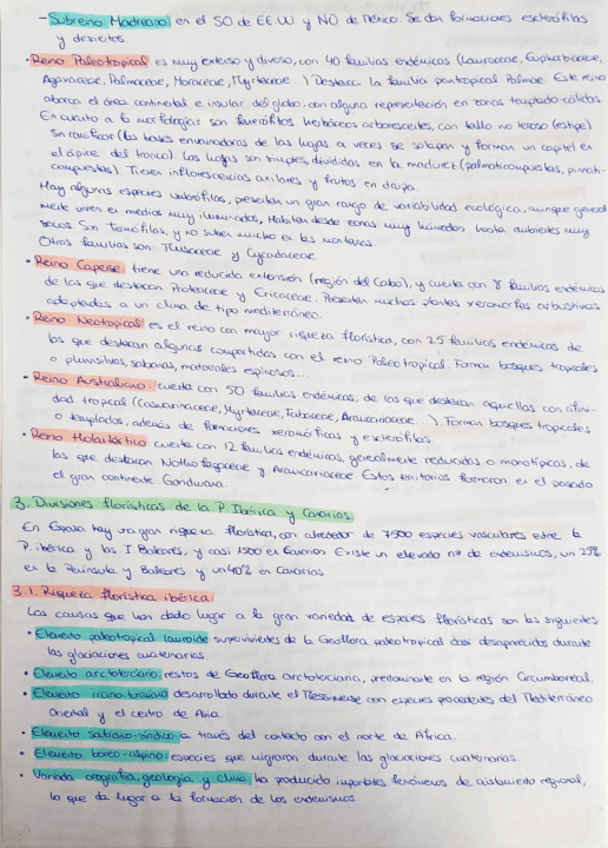 - Subreino Madreano en el SO de EE.UU y NO de México. Se dan formaciones esclerófilas
y desiertos.
· Reino Paleotropical es muy extenso y diverso, con 40 familias endémicas (Lauraceae, Euphorbiaceae,
Agavaceae, Palmaceae, Moraceae, Myrtaceae...) Destaca la familia pantropical Palmae. Este reino
abarca el área continental e insular del globo, con alguna representación en zonas templado-cálidas.
En cuanto a la morfología: son fanerófitos herbáceos arborescentes, con tallo no leñoso (estipe)
sin ramificar (las bases envainadoras de las hojas a veces se solapan y forman un capitel en
el ápice del tronco). Las hojas son simples, divididas en la madurez (palmaticompuestas, pinnati-
compuestas). Tienen inflorescencias axilares y frutos en drupa.
Hay algunas especies umbrófilas, presentan un gran rango de variabilidad ecológica, aunque general
mente viven en medios muy iluminados. Habitan desde zonas muy húmedas hasta ambientes muy
secos. Son termófilas, y no suben mucho en las montañas.
Otras familias son: Musaceae y Cycadaceae
· Reino Capense: tiene una reducida extensión (región del Cabo), y cuenta con 8 familias endémicas
de las que destacan Proteaceae y Ericaceae. Presentan muchas plantas xeromorfas arbustivas
adaptadas a un clima de tipo mediterráneo.
· Reino Neotropical es el reino con mayor riqueza florística, con 25 familias endémicas de
las que destacan algunas compartidas con el reino Paleotropical. Forman bosques tropicales
o pluvisilvas, sabanas, matorrales espinosos...
- Reino Australiano: cuenta con 50 familias endémicas, de las que destacan aquellas con afini-
dad tropical (Casuarinaceae, Myrtaceae, Fabaceae, Araucariaceae...). Forman bosques tropicales
o templados, además de formaciones xeromórficas y esclerófilas.
· Reino Holantártico cuenta con 12 familias endémicas, generalmente reducidas o monotípicas, de
las que destacan Nothofagaceae y Araucariaceae. Estos territorios formaron en el pasado
el gran continente Gondwana.
3. Divisiones florísticas de la P. Ibérica y Canarias.
En España hay una gran riqueza florística, con alrededor de 7500 especies vasculares entre la
P. ibérica y las I Baleares, y casi 1500 en Canarias. Existe un elevado nº de endemismos, un 25%
en la Península y Baleares y un 40% en Canarias
3.1. Riqueza florística ibérica:
Las causas que han dado lugar a la gran variedad de especies florísticas son las siguientes:
· Elemento paleotropical lauroide supervivientes de la Geoflora paleotropical casi desaparecidos durante
las glaciaciones cuaternarias.
· Elemento arctoterciario: restos de Geoflora arctoterciaria, predominante en la región Circumboreal.
· Elemento irano-turaniano desarrollado durante el Messiniense con especies procedentes del Mediterráneo
Oriental y el centro de Asia.
· Elemento sahariano-síndico a través del contacto con el norte de África.
· Elemento boreo-alpino: especies que migraron durante las glaciaciones cuaternarias.
· Variada orografía, geología y clima ha producido importantes fenómenos de aislamiento regional,
lo que da lugar a la formación de los endemismos.